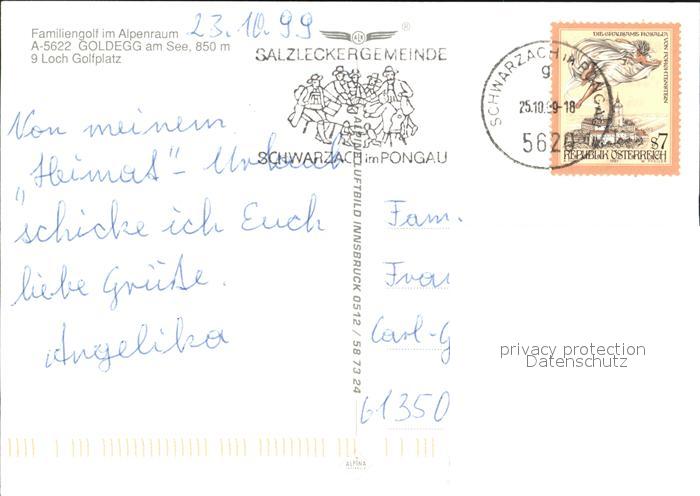 Familiengolf im Alpenraum
A-5622 GOLDEGG am See, 850 m
9 Loch Golfplatz
23.10.99
SALZLECKERGEMEINDE
SCHWARZACH im PONGAU
SCHWARZACH IM PONGAU
g
25.10.99-18
5620
DIE GRAUSAME ROSALIA VON FORCHTENSTEIN
s7
REPUBLIK ÖSTERREICH
Von meinem
"Heimat"- Urlaub
schicke ich Euch
liebe Grüße.
Angelika
ALPINE LUFTBILD INNSBRUCK 0512 / 58 73 24
ALPINA
Fam.
Frau
Carl-G
61350
privacy protection
Datenschutz